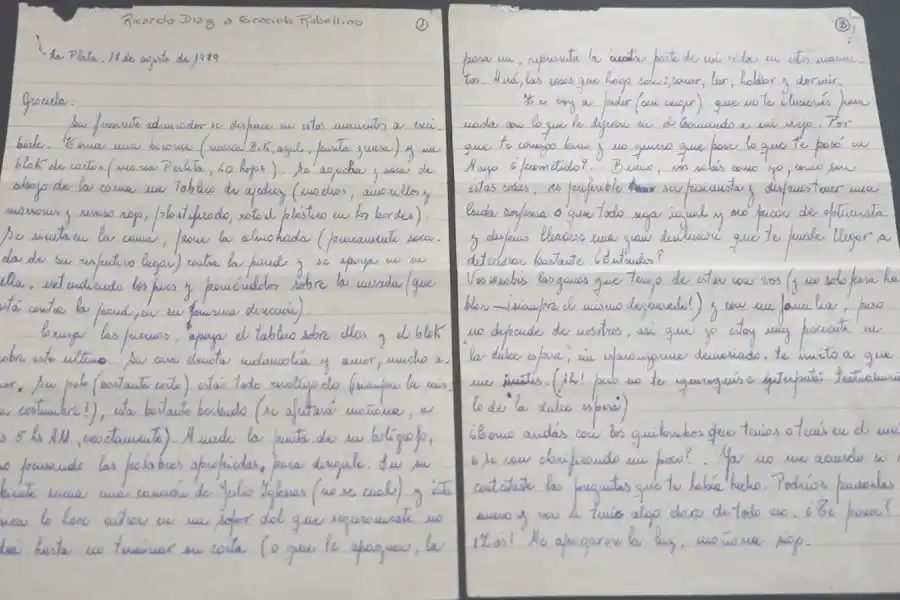 Ricardo Diaz a Graciela Rabellino
1
La Plata, 18 de agosto de 1979
Graciela.
Su ferviente admirador se dispone en estos momentos a escri-
birle. Toma una birome (marca Bik, azul, punta gruesa) y un
blok de cartas (marca Perlita, 40 hojas). Se agacha y saca de
abajo de la cama un tablero de ajedrez (cuadros, amarillos y
marrones y reverso rojo, plastificado, roto el plástico en los bordes).
Se sienta en la cama, pone la almohada (previamente saca-
da de su respectivo lugar) contra la pared y se apoya en
ella, extendiendo los pies y poniéndolos sobre la mesada (que
está contra la pared, en su misma dirección).
Encoge las piernas, apoya el tablero sobre ellas y el blok
sobre este último. Su cara denota melancolía y amor, mucho a-
mor. Su pelo (bastante corto) está todo revoltijado (siempre la mis-
a costumbre!), esta bastante barbudo (se afeitará mañana, a
s 5 hs AM, exactamente). Muerde la punta de su bolígrafo,
pensando las palabras apropiadas, para dirigirle. En su
mente suena una canción de Julio Iglesias (no se cual) y ésta
lo hace entrar en un sopor del que seguramente no
hasta no terminar su carta (o que le apaguen, la
2
para mi, representa la cuarta parte de mi vida en estos momen-
tos. Mirá, las cosas que hago son: comer, leer, hablar y dormir.
Te voy a pedir (casi exigir) que no te ilusionés para
nada con lo que le dijeron en el Comando a mi viejo. Por
que te conozco bien y no quiero que pase lo que te pasó en
Mayo ¿prometido?. Bueno, vos sabés como yo, como son
estas cosas, es preferible ser pesimista y despues tener una
linda sorpresa o que todo siga igual y no pecar de optimista
y despues llevarse una gran desilusión que te puede llegar a
deteriorar bastante ¿Entendés?
Vos sabés las ganas que tengo de estar con vos (y no solo para ha-
blar -¡siempre el mismo degenerado!) y con mi familia, pero
no depende de nosotros, asi que yo estoy muy paciente en
"la dulce espera", sin esperanzarme demasiado, te invito a que
me imités. (Ah! pero no te equivoqués e interpretés textualmente
lo de "la dulce espera")
¿Como andás con los quilombos que tenias o tenés en el
¿Se van clarificando un poco?. Ya no me acuerdo si
contestaste las preguntas que te había hecho. Podrías pensarlas
nuevo y ver si tenés algo claro de todo eso. ¿Te parece?
¡Zas! Me apagaron la luz, mañana sigo.